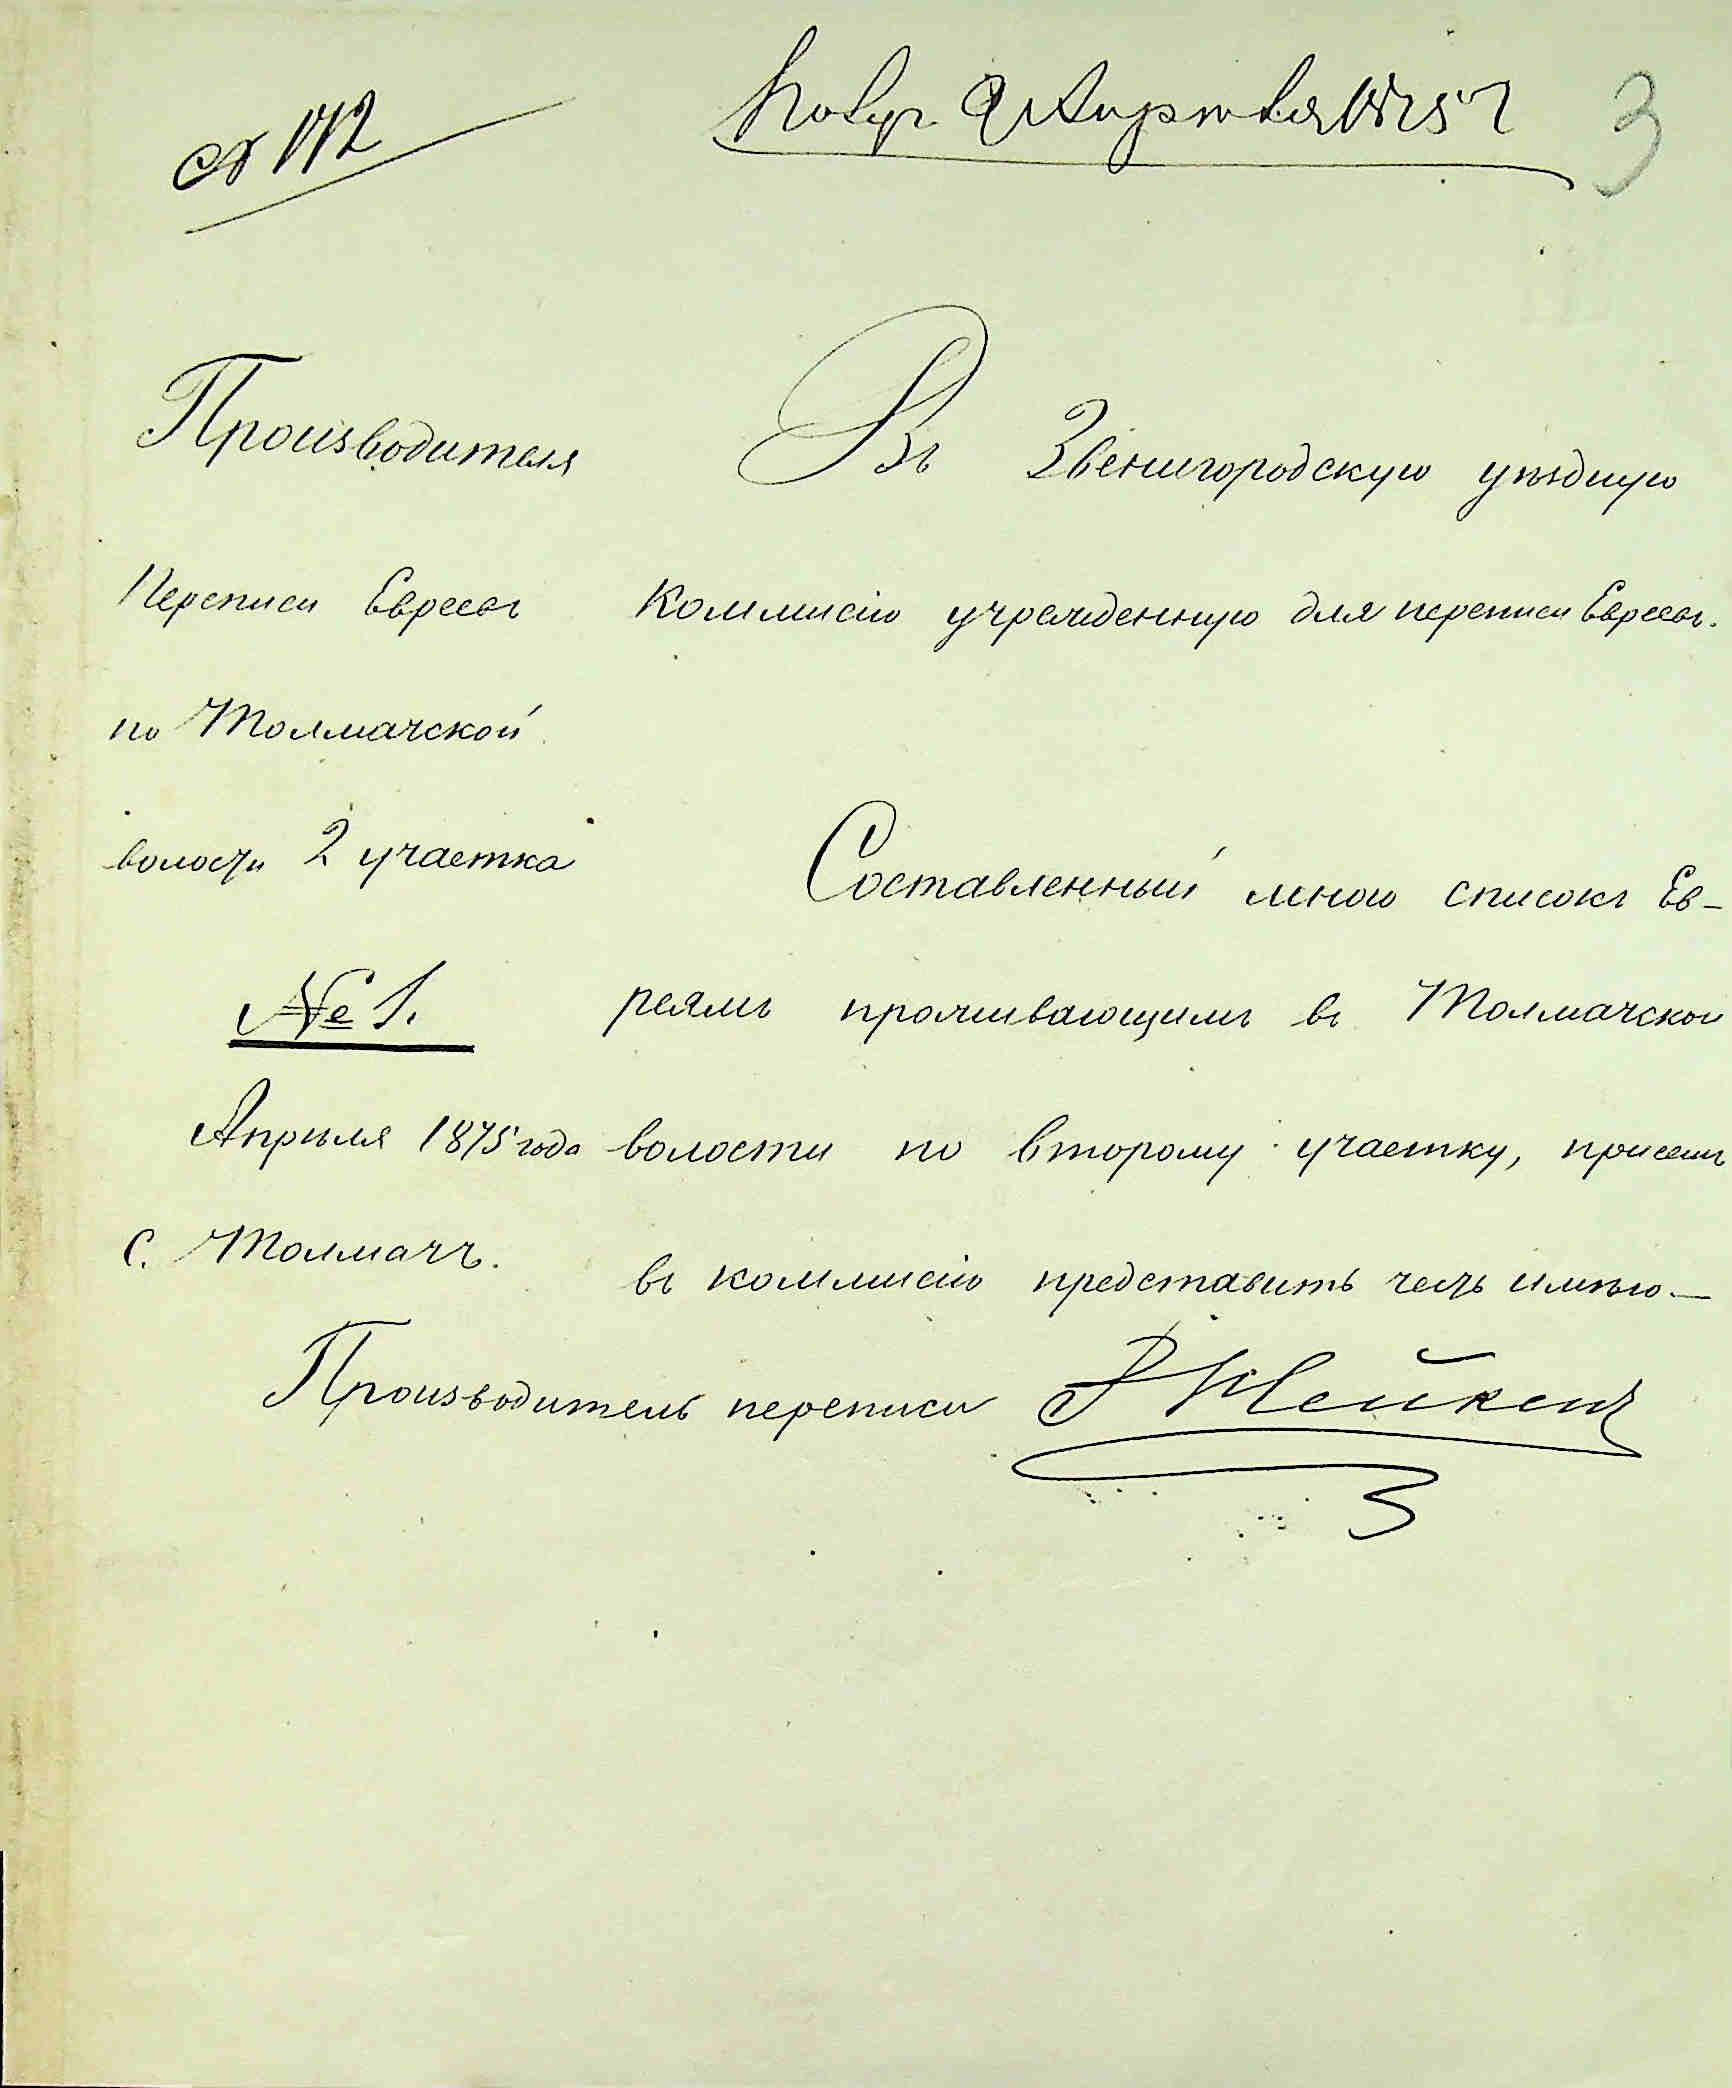 № 172
Получ. 9 Апреля 1875 г
3
Производителя
Переписи Евреевъ
по Толмачской
волости 2 участка
№ 1.
Апрѣля 1875 года
С. Толмачъ.
Въ Звенигородскую уѣздную
Коммисію учрежденную для переписи Евреевъ.
Составленный мною списокъ Ев-
реямъ проживающимъ въ Толмачской
волости по второму участку, присемъ
въ коммисію представить честь имѣю.—
Производитель переписи